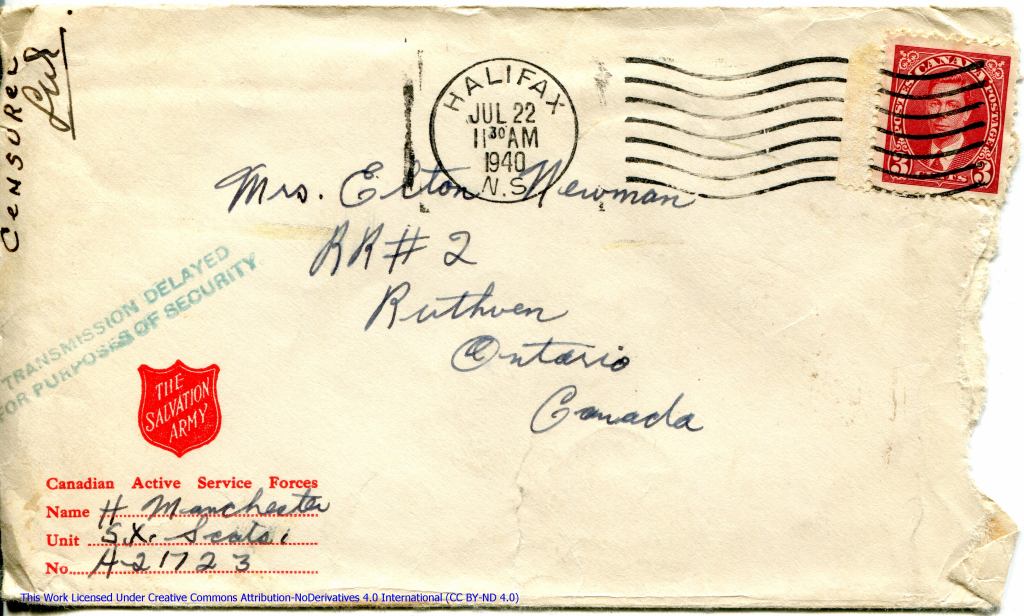 CENSURED
HALIFAX
JUL 22
11 30 AM
1940
N.S.
CANADA
POSTES POSTAGE
3 CENTS 3
Mrs. Elton Newman
RR# 2
Ruthven
Ontario
Canada
TRANSMISSION DELAYED
FOR PURPOSES OF SECURITY
THE
SALVATION
ARMY
Canadian Active Service Forces
Name H Manchester
Unit S.X. Scots.
No. A-21723
This Work Licensed Under Creative Commons Attribution-NoDerivatives 4.0 International (CC BY-ND 4.0)